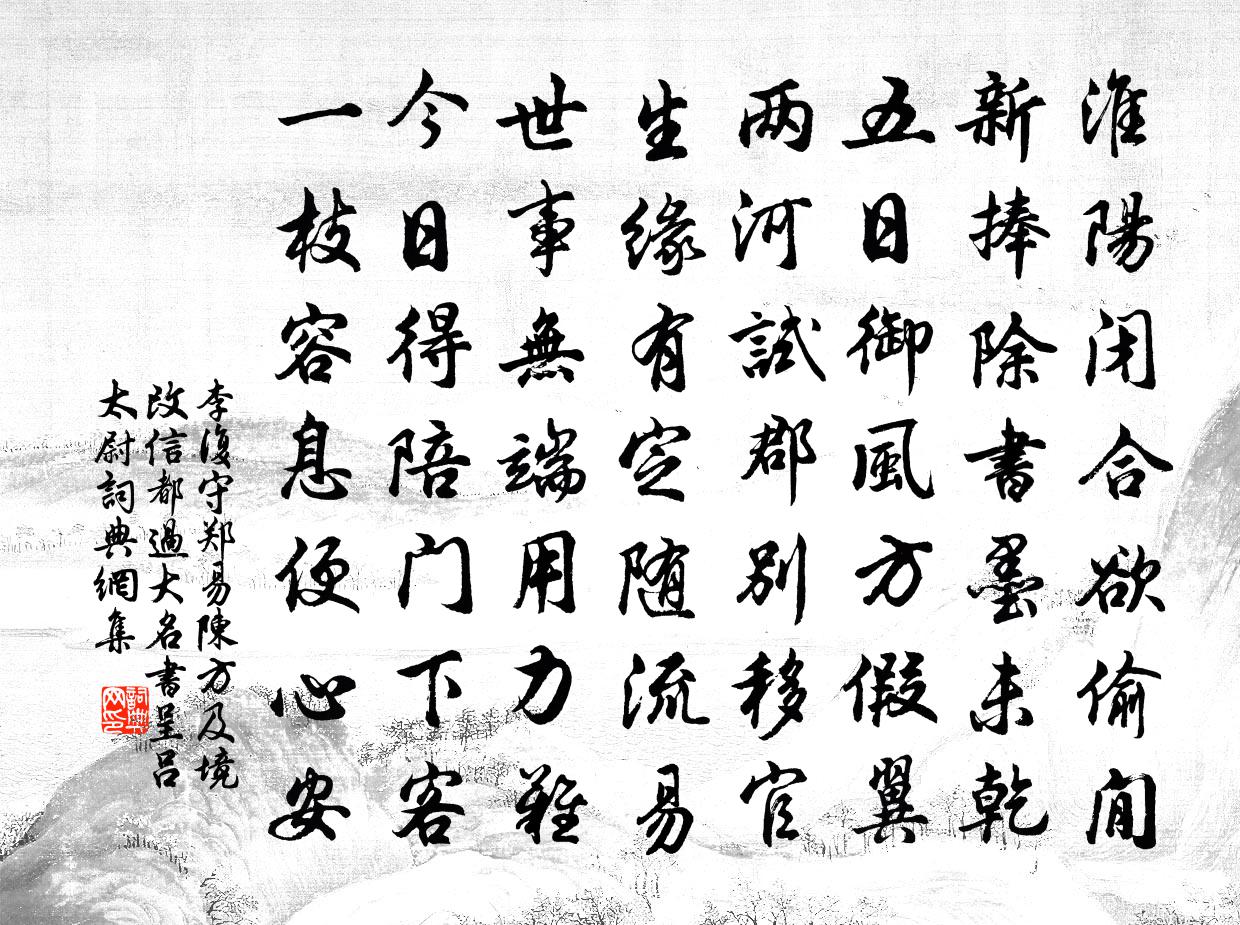 淮陽闭合欲偷閒
新捧除書墨未乾
五日御風方假翼
两河試郡别移官
生缘有定随流易
世事無端用力難
今日得陪门下客
一枝容息便心安
李復守郑易陳方及境
改信都過大名書呈吕
太尉詞典網集
詞典网印